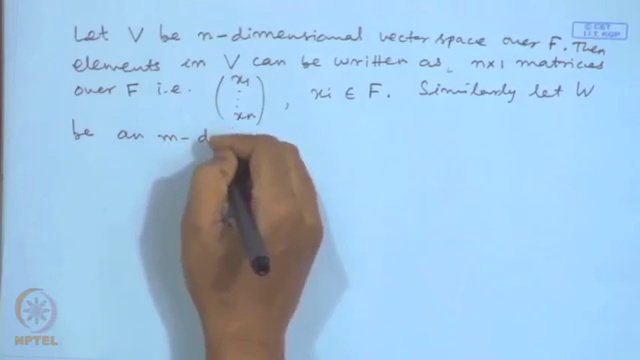 © CET
I.I.T. KGP
Let V be n-dimensional vector space over F. Then
elements in V can be written as, n×1 matrices
over F i.e. (x1 ⋮ xn), xi ∈ F. Similarly let W
be an m-d
NPTEL